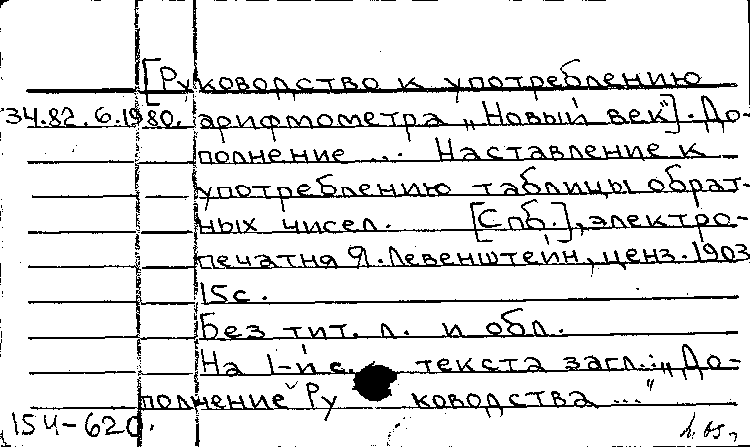 [Руководство к употреблению
34.82.6.1980. арифмометра „Новый век"]. До-
полнение ... Наставление к
употреблению таблицы обрат-
ных чисел. [Спб.], электро-
печатня Я. Левенштейн, ценз. 1903
15с.
Без тит. л. и обл.
На 1-й с. текста загл.: „До-
полнение Руководства ..."
154-620.